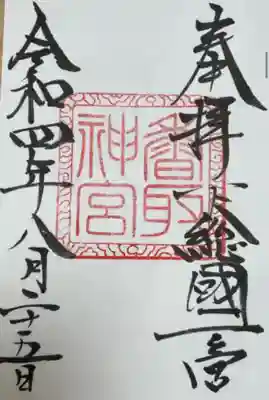 奉拝下総國一宮
香取
神宮
令和四年八月二十五日